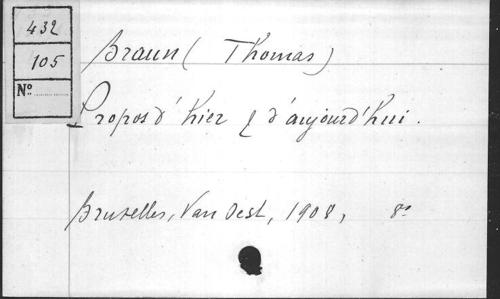 432
105
N°
Braun (Thomas)
Propos d'hier & d'aujourd'hui.
Bruxelles, Van Oest, 1908, 8°